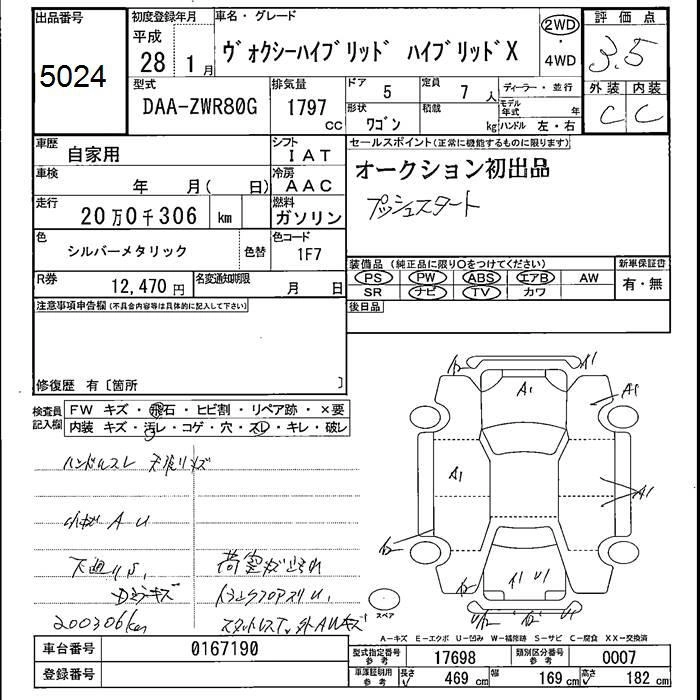 出品番号 初度登録年月 車名・グレード 評価点
5024 平成 28 1月 ヴォクシーハイブリッド ハイブリッドX 2WD・4WD 3.5
型式 排気量 ドア 5 定員 7人 ディーラー・並行 外装 内装
DAA-ZWR80G 1797cc 形状 ワゴン 積載 kg モデル年式 年 ハンドル 左・右 C C
車歴 自家用 シフト IAT セールスポイント(正常に機能するものに限ります)
車検 年 月( 日) 冷房 AAC オークション初出品
走行 20万0千306 km 燃料 ガソリン プッシュスタート
色 シルバーメタリック 色替 色コード 1F7
装備品 (純正品に限り○をつけてください) 新車保証書
PS PW ABS エアB AW 有・無
SR ナビ TV カワ
R券 12,470円 名変通知期限 月 日
後日品
注意事項申告欄(不具合内容等は具体的に記入して下さい)
修復歴 有〔箇所 〕
検査員記入欄 FW キズ・飛石・ヒビ割・リペア跡・×要
内装 キズ・汚レ・コゲ・穴・スレ・キレ・破レ
ハンドルスレ 天張リキズ
小キズ A U
下廻りS,
荷室キズ汚れ
200306km
A1 A1
A1 A1
スペア
A-キズ E-エクボ U-凹み W-補修跡 S-サビ C-腐食 XX-交換済
車台番号 0167190 型式指定番号 参考 17698 類別区分番号 参考 0007
登録番号 車庫証明用 参考 長さ 469 cm 幅 169 cm 高さ 182 cm